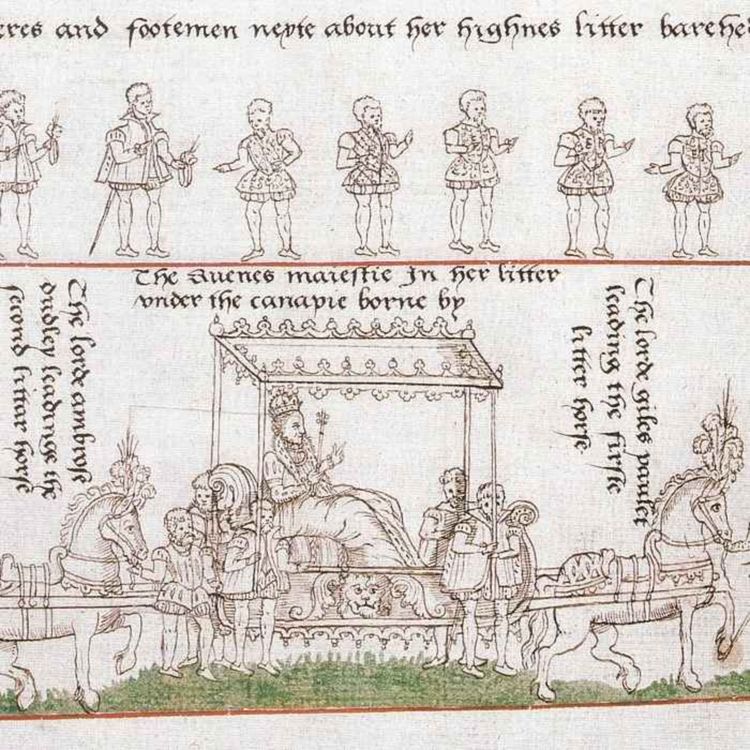 eres and footemen nexte about her highnes litter barehe
The Quenes maiestie In her litter
vnder the canapie borne by
The lorde ambrose
dudley leadinge the
second littar horse
The lorde giles paulet
leading the firste
litter horse